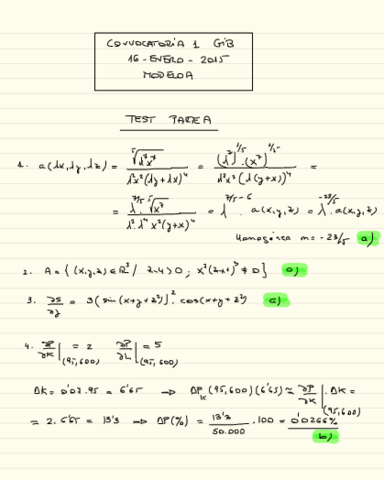 CONVOCATORIA 1 GIB
16-ENERO-2015
MODELO A
TEST PARTE A
1. a(λx,λy,λz) = ⁵√(λ⁷x⁷) / (λ²x²(λy+λx)⁴) = (λ⁷)^(1/5) · (x⁷)^(1/5) / (λ²x²(λ(y+x))⁴) =
= λ^(7/5) · ⁵√(x⁷) / (λ²·λ⁴ x²(y+x)⁴) = λ^(7/5 - 6) · a(x,y,z) = λ^(-23/5) · a(x,y,z)
Homogénea m = -23/5 a)
2. A = { (x,y,z) ∈ ℝ³ / z-4 > 0 ;
3. = 3(sin(x+y+z²))² · cos(x+y+z²) a)
4. ∂P/∂K |(95,600) = 2 ∂P/∂L |(95,600) = 5
ΔK = 0'07·95 = 6'65 → ΔP_K (95,600)(6'65) ≈ ∂P/∂K |(95,600) · ΔK =
= 2 · 6'65 = 13'3 → ΔP(%) = 13'3 / 50.000 · 100 = 0'0266%
b)